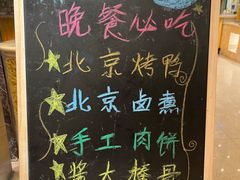 晚餐必吃
北京烤鸭
北京卤煮
手工肉饼
酱大棒骨